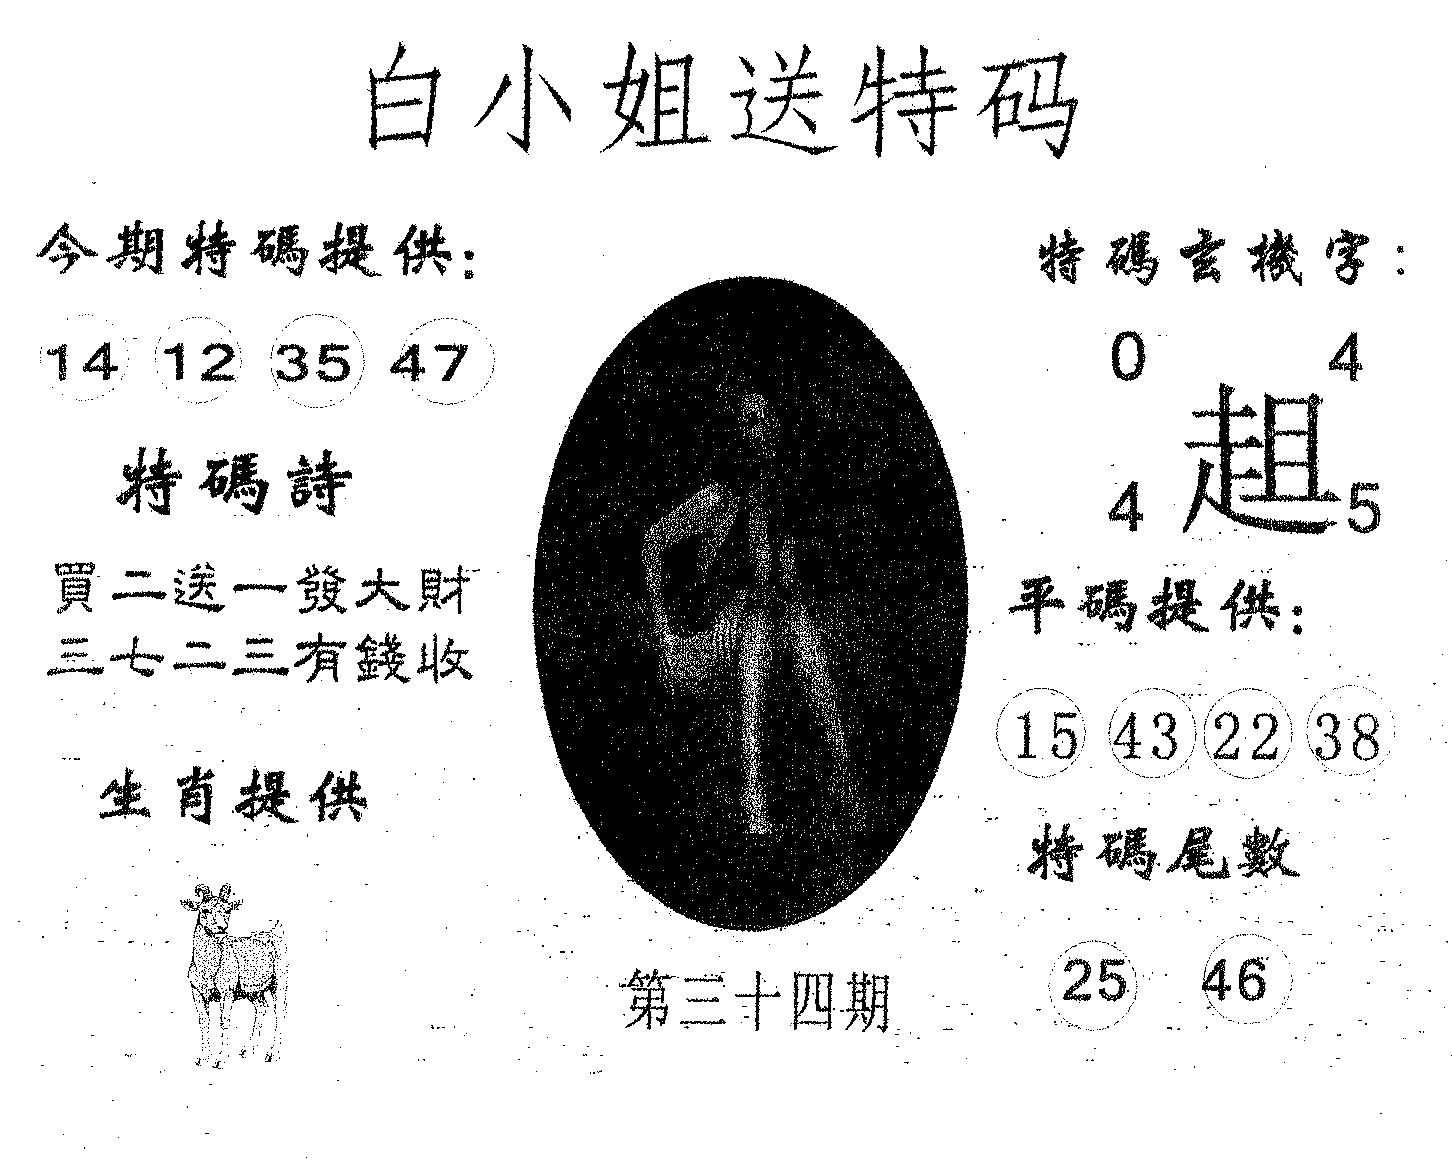 白小姐送特码
今期特碼提供：
14 12 35 47
特碼詩
買二送一發大財
三七二三有錢收
生肖提供
第三十四期
特碼玄機字：
0 4
趄
4 5
平碼提供：
15 43 22 38
特碼尾數
25 46